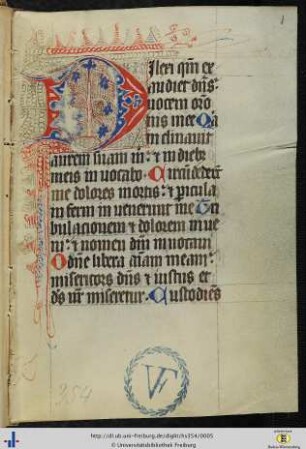 1
Dilexi qm̄ ex
audiet dn̄s
uocem oro
nis mee Qa
inclinauit
aurem suam m: et in dieb;
meis inuocabo. Circūdederūt
me dolores mortis: et pericula
inferni inuenerunt me Tri
bulacionem et dolorem inue
ni: et nomen dn̄i inuocaui
O dn̄e libera aīam meam:
misericors dn̄s et iustus et
ds̄ nr̄ miseretur. Custodiēs
354
VF
http://dl.ub.uni-freiburg.de/diglit/hs354/0005
© Universitätsbibliothek Freiburg